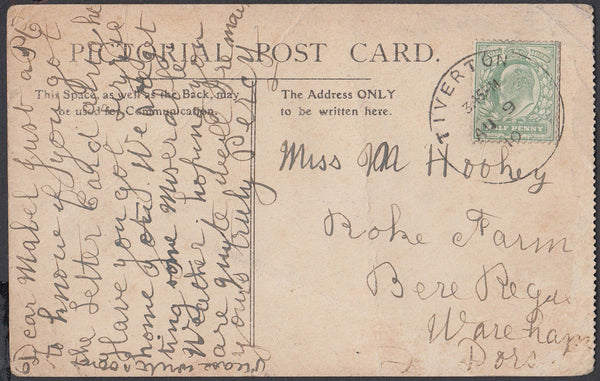 PICTORIAL POST CARD.
This Space, as well as the Back, may
be used for Communication.
The Address ONLY
to be written here.
TIVERTON
3.15 PM
9
10
HALF PENNY
Miss M Hookey
Roke Farm
Bere Regis
Wareham
Dors.
Dear Mabel Just a PC
to know if you got
the letter Card alright
Have you got
home yet. We are
ting some Miserable
Weather hoping you
are quite well
yours truly Percy
Please write